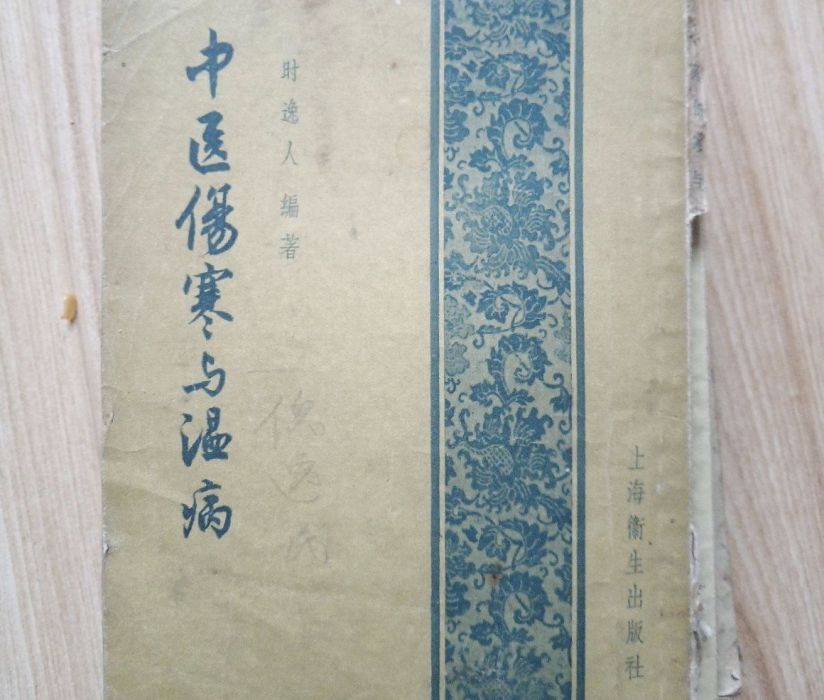 中医傷寒与温病
时逸人 編著
上海衞生出版社